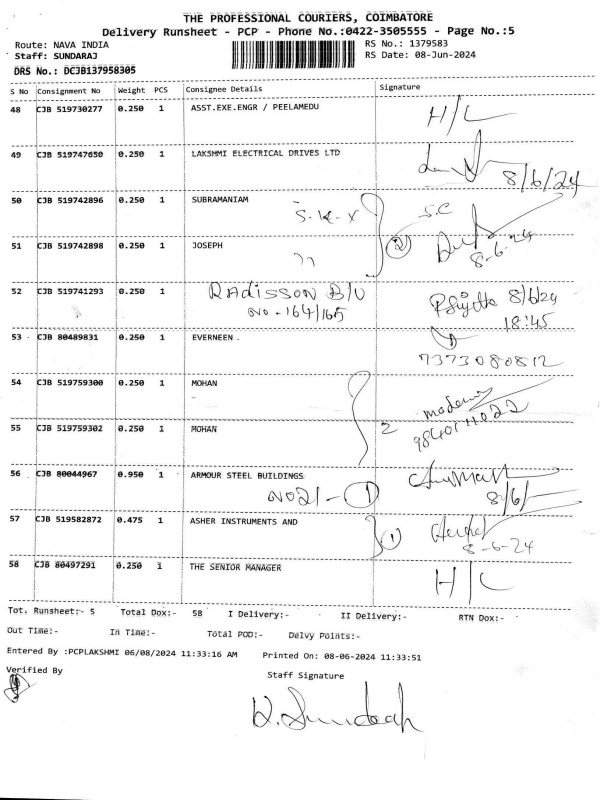 THE PROFESSIONAL COURIERS, COIMBATORE
Delivery Runsheet - PCP - Phone No.:0422-3505555 - Page No.:5
Route: NAVA INDIA RS No.: 1379583
Staff: SUNDARAJ RS Date: 08-Jun-2024
DRS No.: DCJB137958305
S No Consignment No Weight PCS Consignee Details Signature
48 CJB 519730277 0.250 1 ASST.EXE.ENGR / PEELAMEDU H/L
49 CJB 519747650 0.250 1 LAKSHMI ELECTRICAL DRIVES LTD
8/6/24
50 CJB 519742896 0.250 1 SUBRAMANIAM
S.K. S.C
51 CJB 519742898 0.250 1 JOSEPH 2
8-6-24
52 CJB 519741293 0.250 1 RADISSON B/U 8/6/24
NO-164/165 18:45
53 CJB 80489831 0.250 1 EVERNEEN .
7373080812
54 CJB 519759300 0.250 1 MOHAN
2
55 CJB 519759302 0.250 1 MOHAN
56 CJB 80044967 0.950 1 ARMOUR STEEL BUILDINGS
NO21- 1 8/6/
57 CJB 519582872 0.475 1 ASHER INSTRUMENTS AND
1 8-6-24
58 CJB 80497291 0.250 1 THE SENIOR MANAGER H/L
Tot. Runsheet:- 5 Total Dox:- 58 I Delivery:- II Delivery:- RTN Dox:-
Out Time:- In Time:- Total POD:- Delvy Points:-
Entered By :PCPLAKSHMI 06/08/2024 11:33:16 AM Printed On: 08-06-2024 11:33:51
Verified By Staff Signature